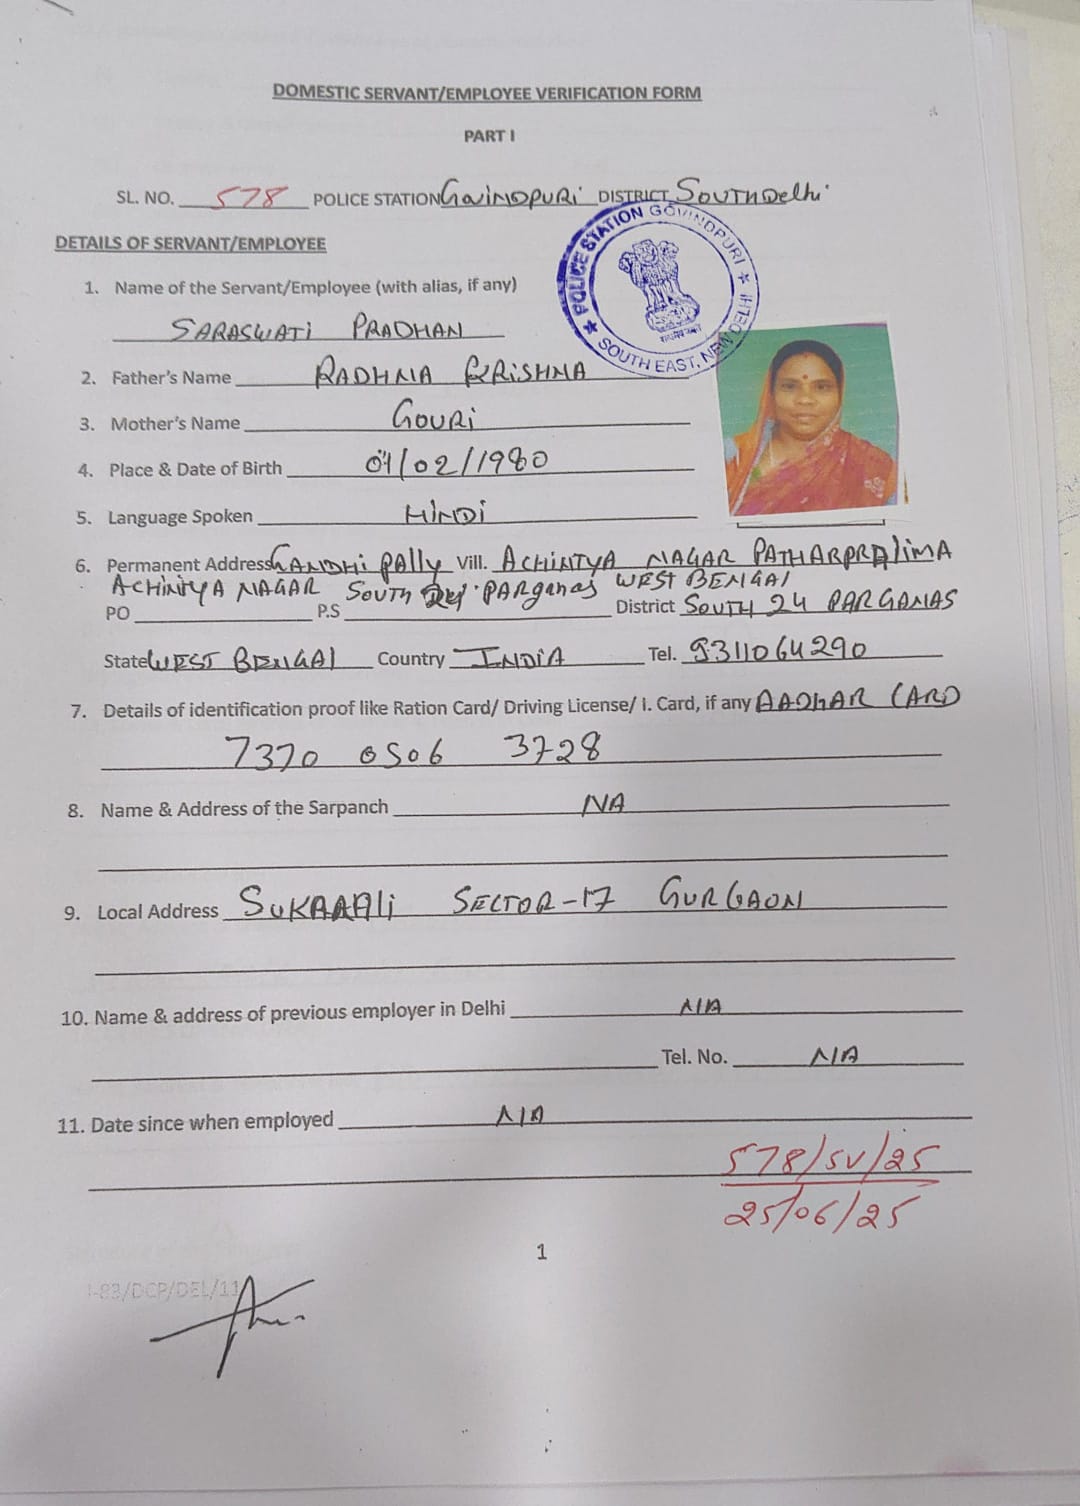 DOMESTIC SERVANT/EMPLOYEE VERIFICATION FORM
PART I
SL. NO. 578 POLICE STATION GovinDPURi DISTRICT SOUTH Delhi
DETAILS OF SERVANT/EMPLOYEE
★ POLICE STATION GOVINDPURI ★ SOUTH EAST, NEW DELHI
सत्यमेव जयते
1. Name of the Servant/Employee (with alias, if any)
SARASWATi PRADHAN
2. Father's Name RADHNA KRISHNA
3. Mother's Name GOURi
4. Place & Date of Birth 01/02/1980
5. Language Spoken HiNDi
6. Permanent Address GANDHi PAlly Vill. ACHINTYA NAGAR PATHARPRAlimA
ACHiNTYA NAGAR SOUTH PARganas WEST BENGAl
PO P.S District SOUTH 24 PARGANAS
State WEST BENGAl Country INDiA Tel. 9311064290
7. Details of identification proof like Ration Card/ Driving License/ I. Card, if any AADHAR CARD
7370 0506 3728
8. Name & Address of the Sarpanch NA
9. Local Address SUKARAli SECTOR-17 GURGAON
10. Name & address of previous employer in Delhi N/A
Tel. No. N/A
11. Date since when employed N/A
578/SV/25
25/06/25
1
-83/DCP/DEL/11